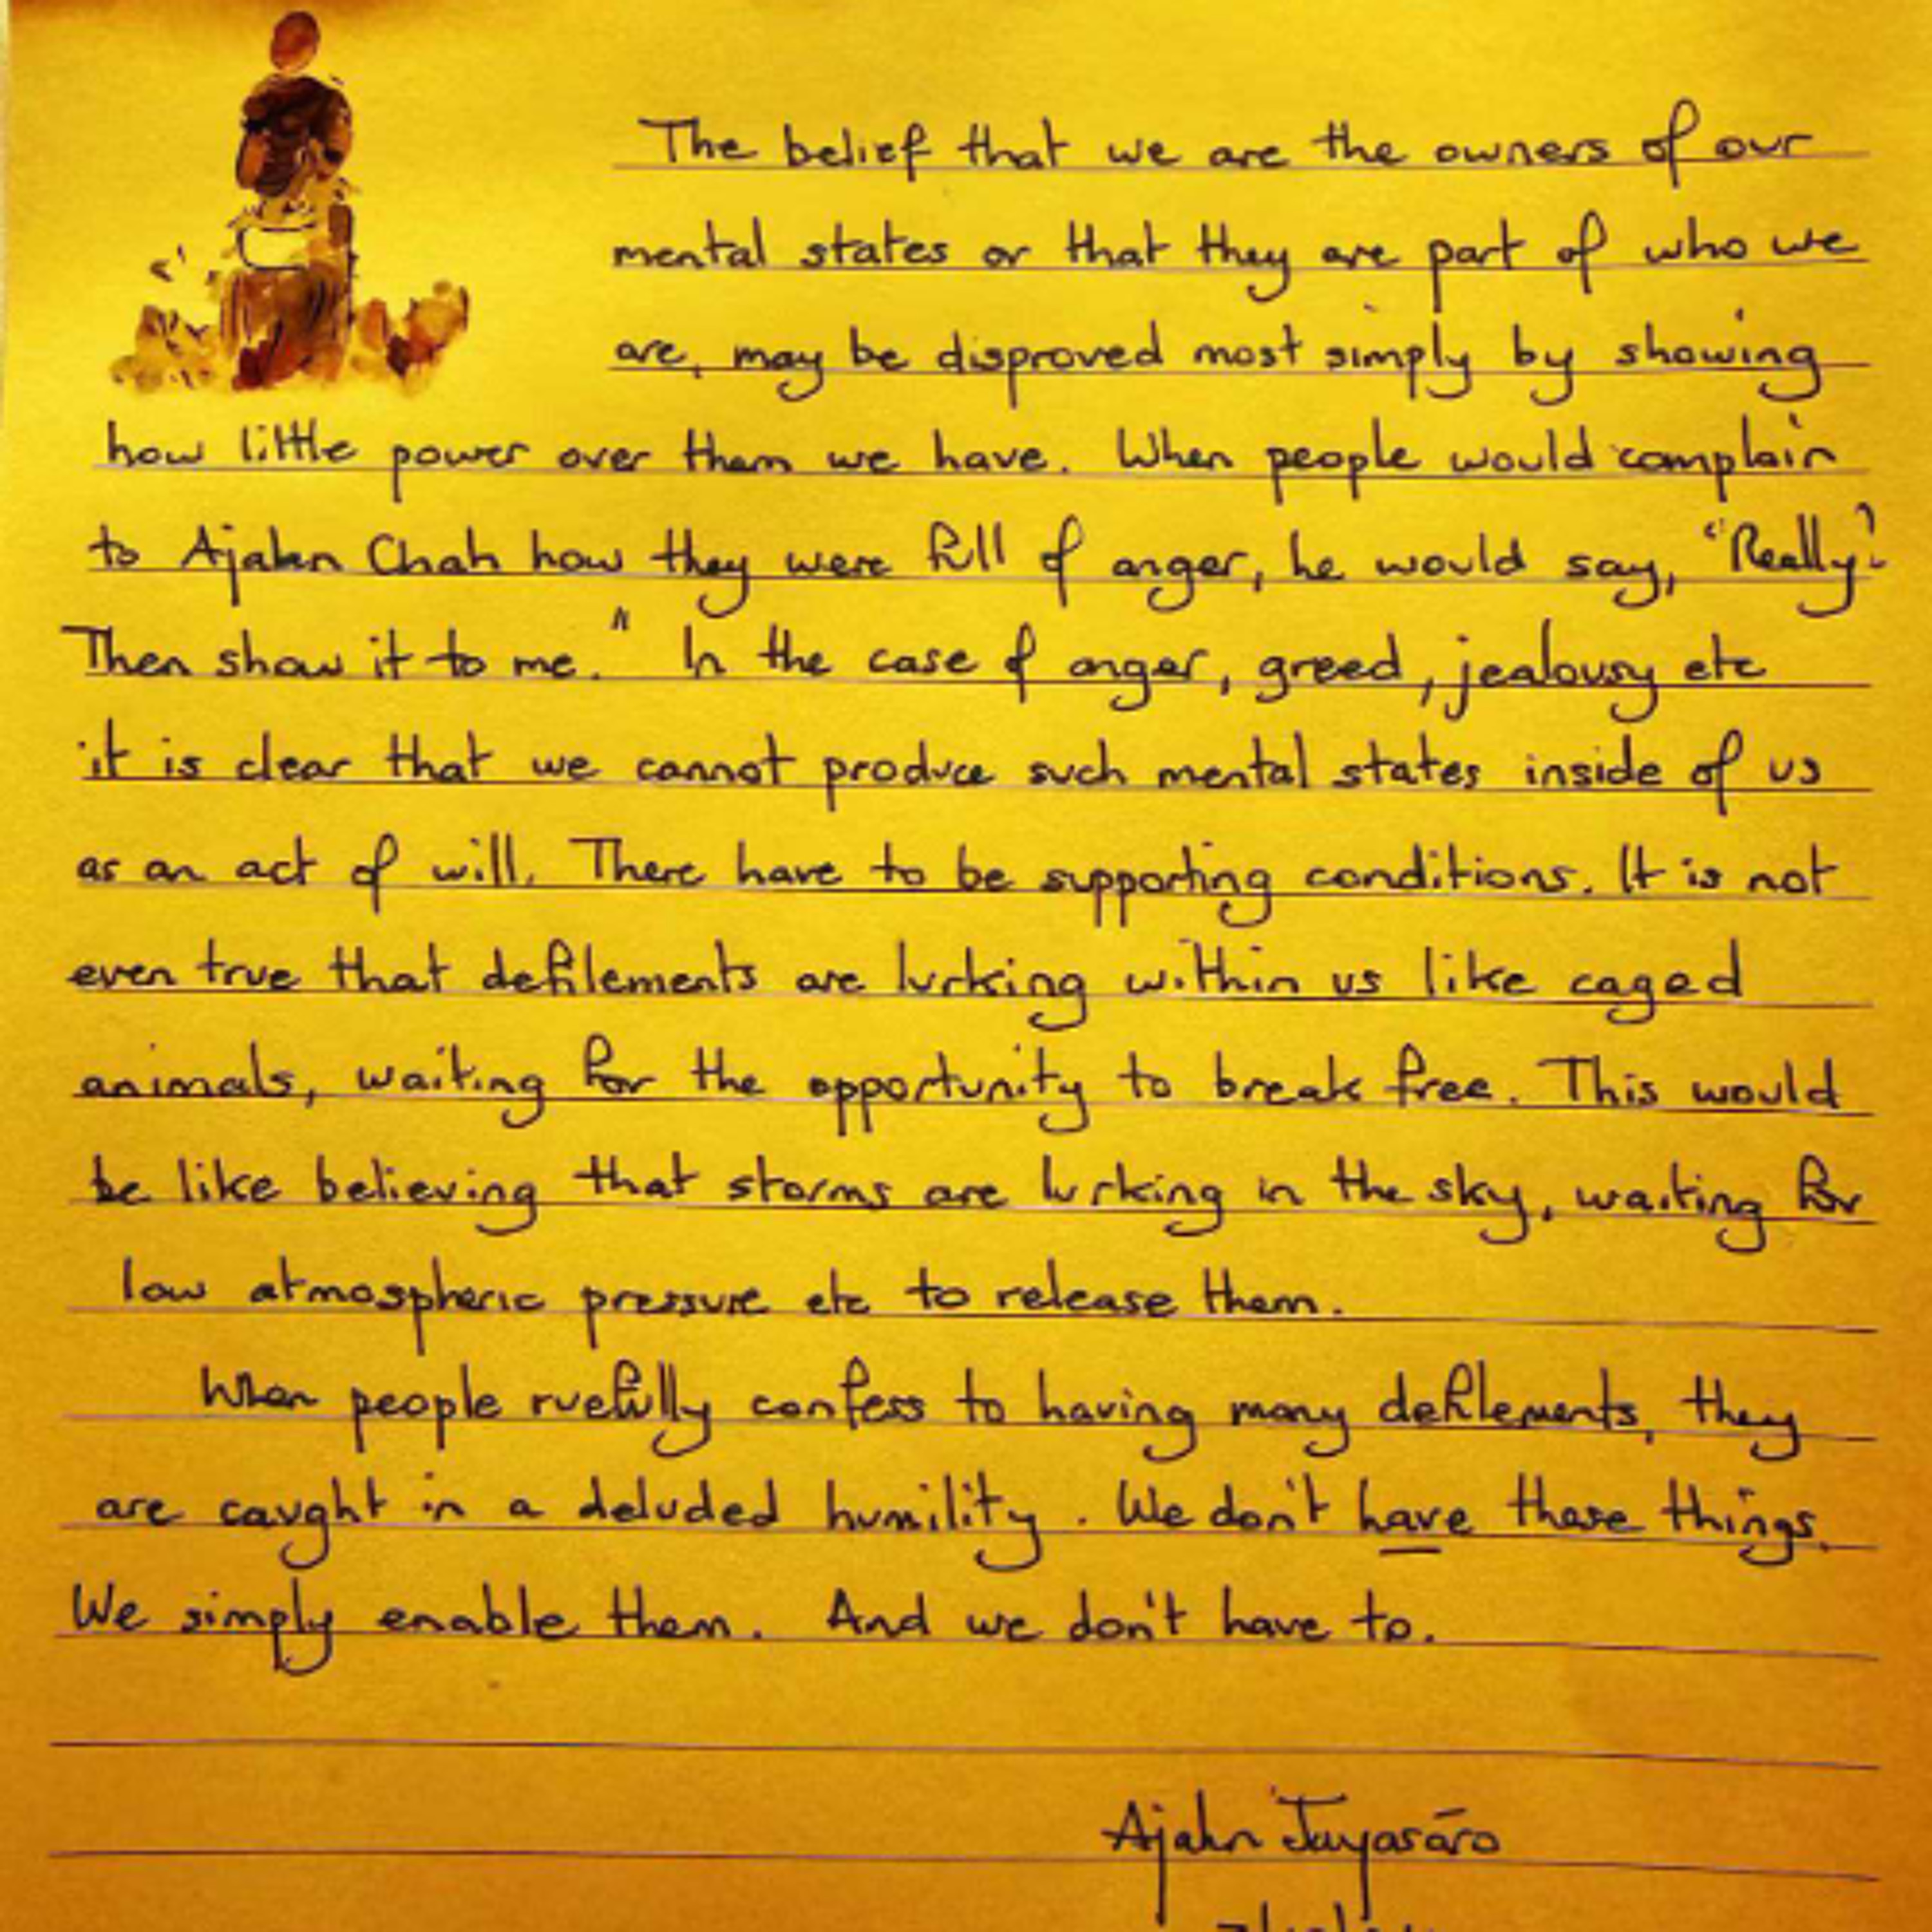 The belief that we are the owners of our
mental states or that they are part of who we
are, may be disproved most simply by showing
how little power over them we have. When people would complain
to Ajahn Chah how they were full of anger, he would say, "Really?
Then show it to me." In the case of anger, greed, jealousy etc
it is clear that we cannot produce such mental states inside of us
as an act of will. There have to be supporting conditions. It is not
even true that defilements are lurking within us like caged
animals, waiting for the opportunity to break free. This would
be like believing that storms are lurking in the sky, waiting for
low atmospheric pressure etc to release them.
When people ruefully confess to having many defilements, they
are caught in a deluded humility. We don't have these things.
We simply enable them. And we don't have to.
Ajahn Jayasāro